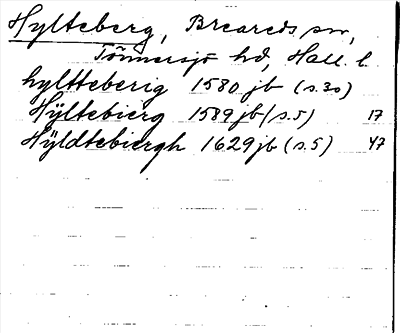 Hylteberg, Breareds sn,
Tönnersjö hd, Hall. l.
hyltteberig 1580 jb (s.30)
Hÿltebierg 1589 jb (s.5) 17
Hÿldtebiergh 1629 jb (s.5) 47